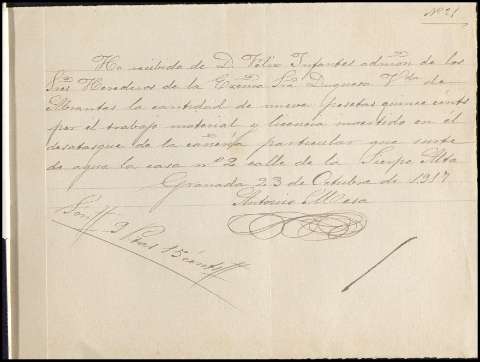 Nº 21
He recibido de D. Félix Infantes admon de los
Sres Herederos de la Excma Sra Duquesa Vda de
Abrantes la cantidad de nueve pesetas quince cénts
por el trabajo material y licencia invertido en el
desatasque de la cañería particular que surte
de agua la casa nº 2 calle de la Sierpe Alta
Granada 23 de Octubre de 1917
Antonio Mesa
Son 9 Ptas 15 cénts